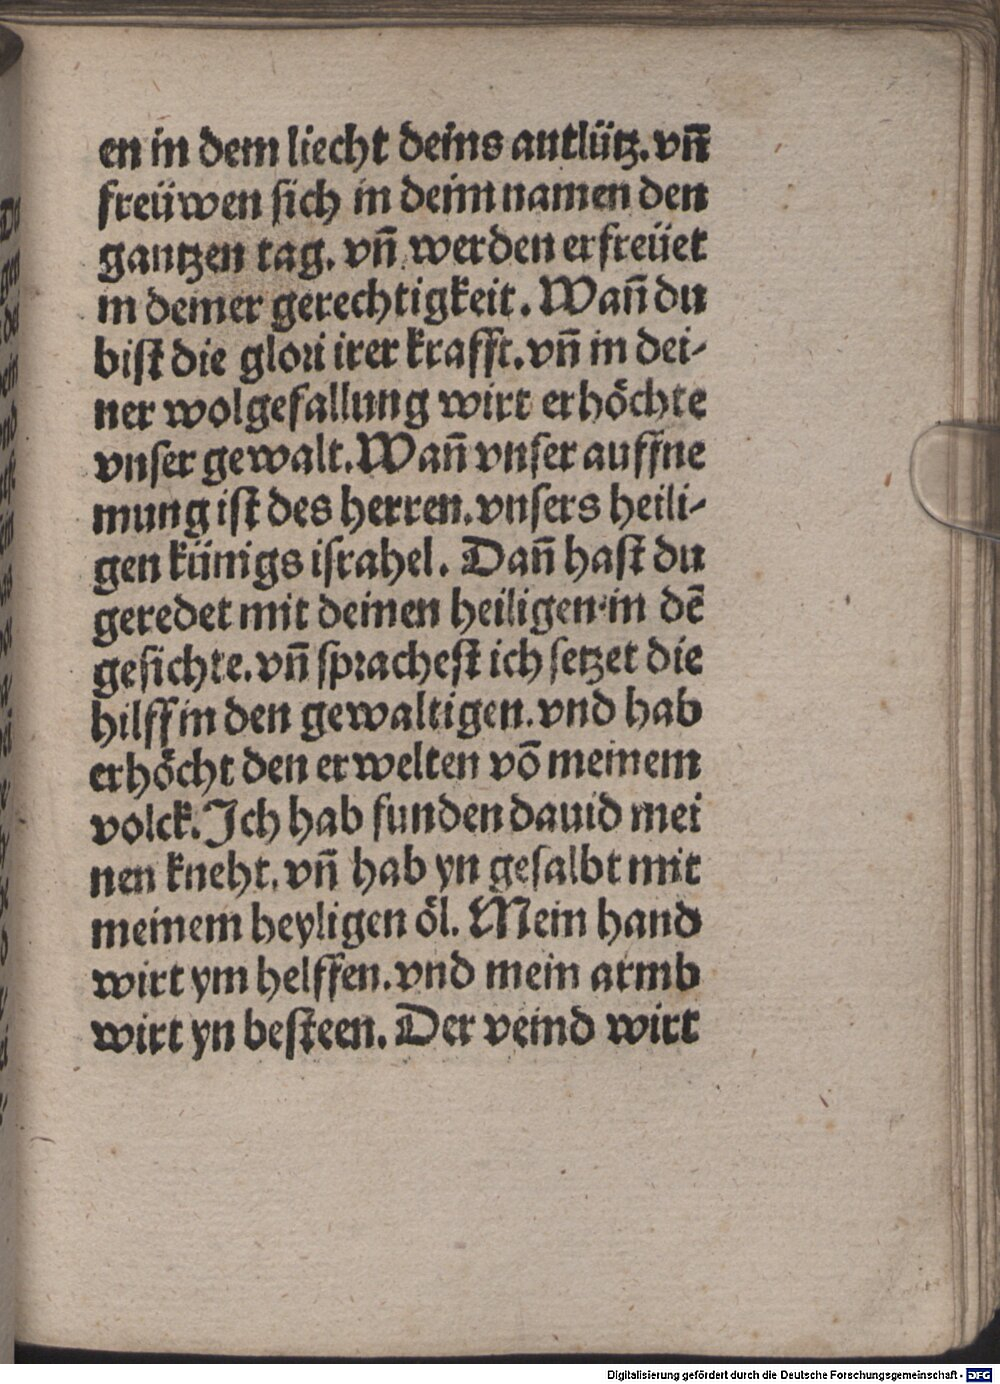 en in dem liecht deins antlütz. vñ
freüwen sich in deim namen den
gantzen tag. vñ werden erfreüet
in deiner gerechtigkeit. Wañ du
bist die glori irer krafft. vñ in dei-
ner wolgefallung wirt erhöchte
vnser gewalt. Wañ vnser auffne
mung ist des herren. vnsers heili-
gen künigs israhel. Dañ hast du
geredet mit deinen heiligen in dē
gesichte. vñ sprachest ich setzet die
hilff in den gewaltigen. vnd hab
erhöcht den erwelten võ meinem
volck. Ich hab funden dauid mei
nen kneht. vñ hab yn gesalbt mit
meinem heyligen öl. Mein hand
wirt ym helffen. vnd mein armb
wirt yn besteen. Der veind wirt
Digitalisierung gefördert durch die Deutsche Forschungsgemeinschaft - DFG